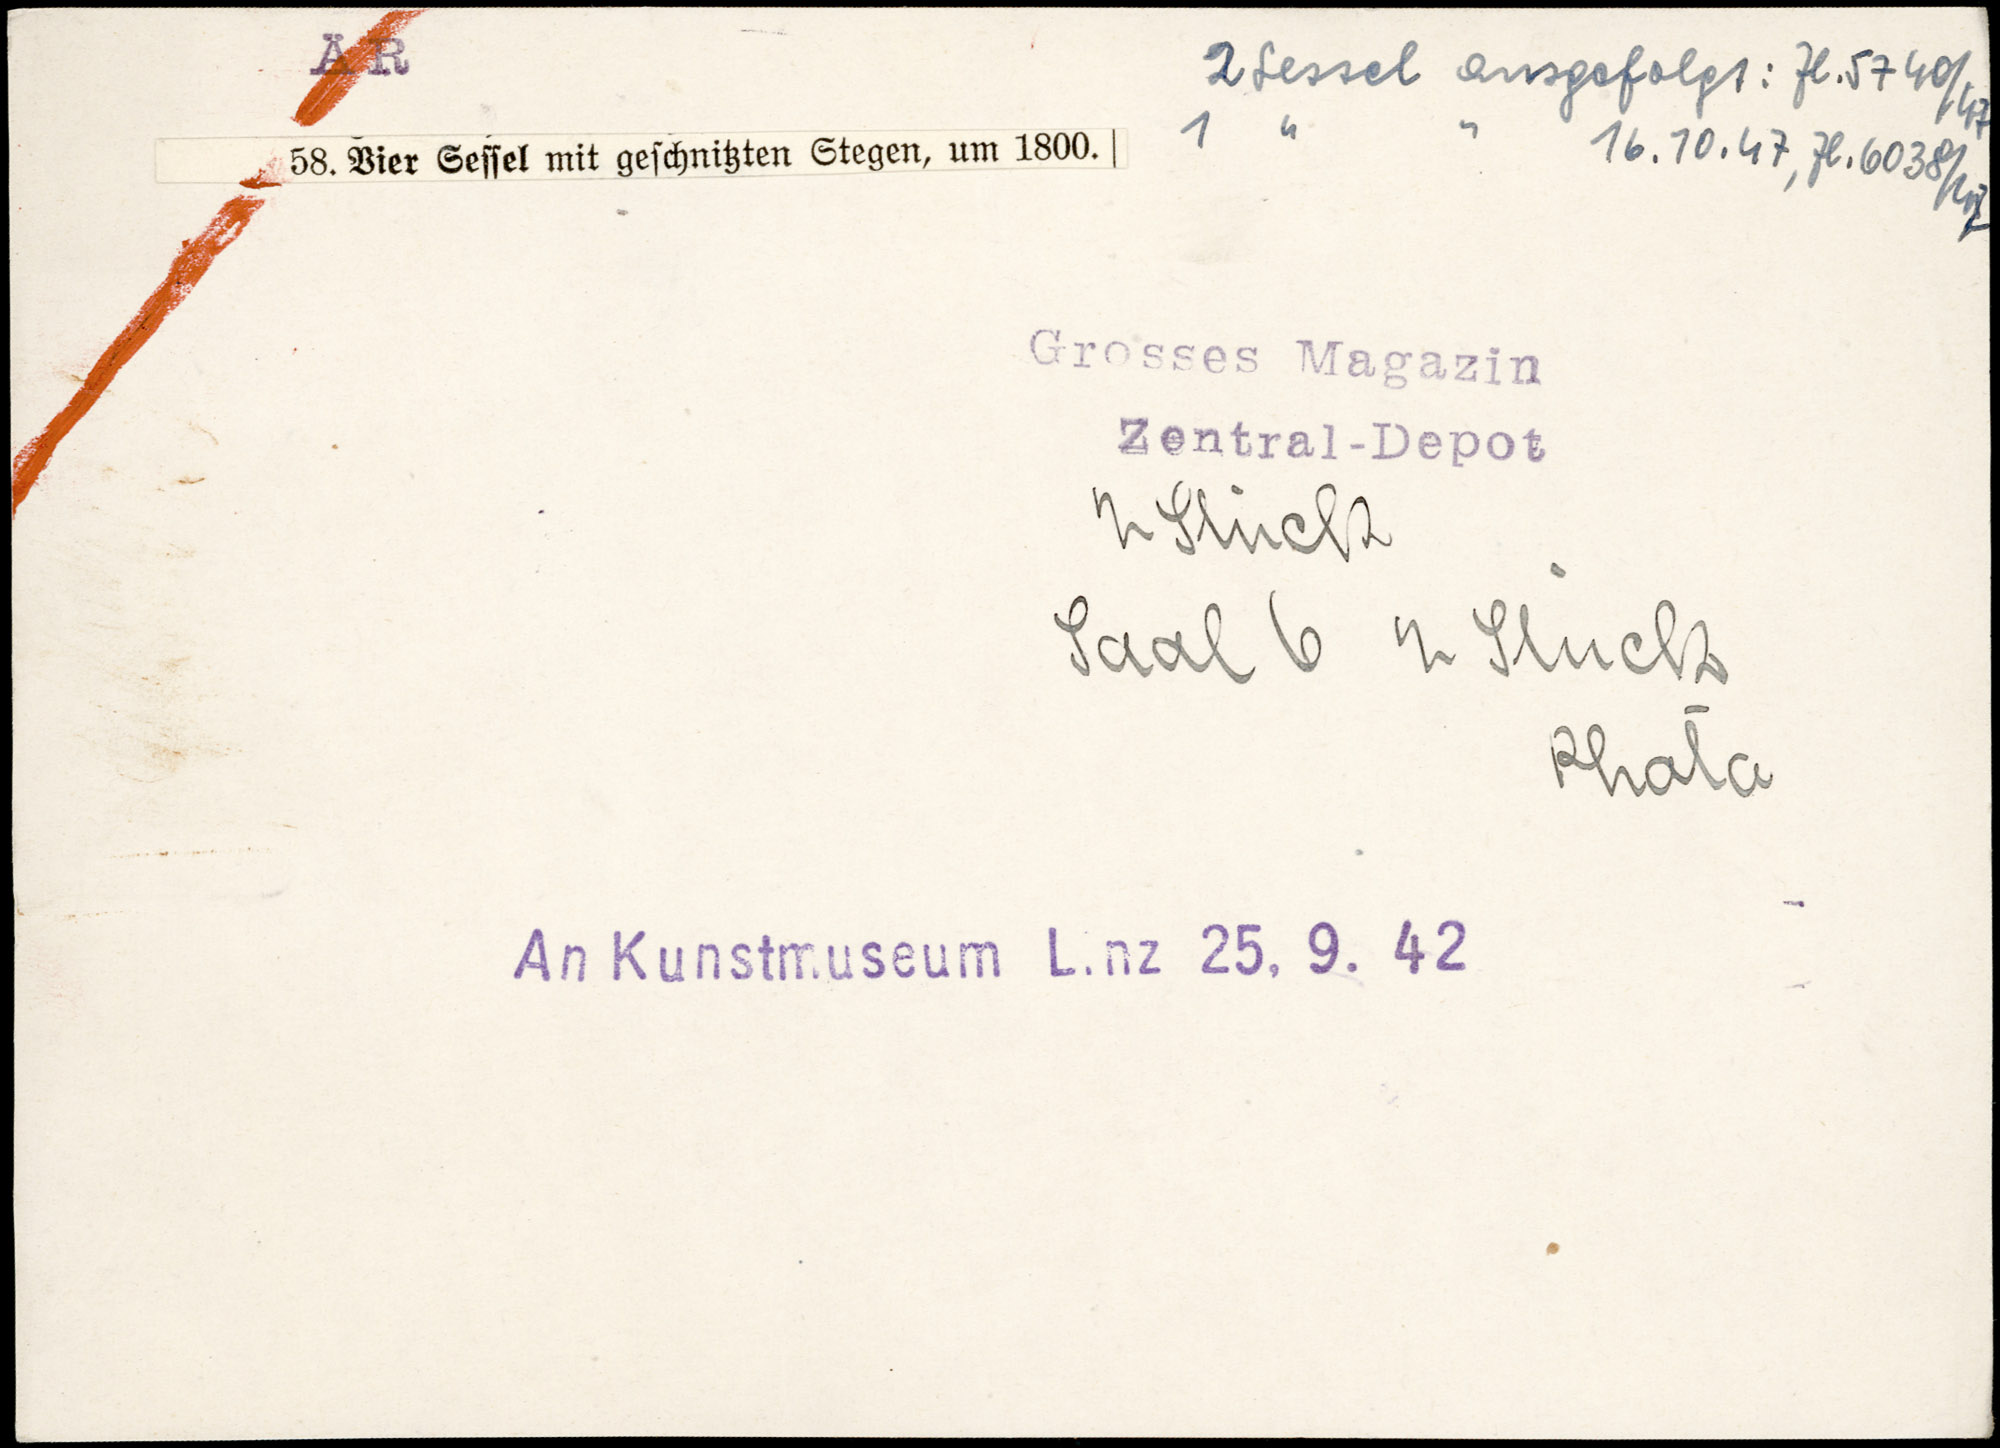 AR
2 Sessel ausgefolgt: Zl. 5740/47
1 " " 16.10.47, Zl. 6038/47
58. Vier Seſſel mit geſchnitzten Stegen, um 1800.
Grosses Magazin
Zentral-Depot
4 Stück
Saal 6 4 Stück
An Kunstmuseum Linz 25. 9. 42